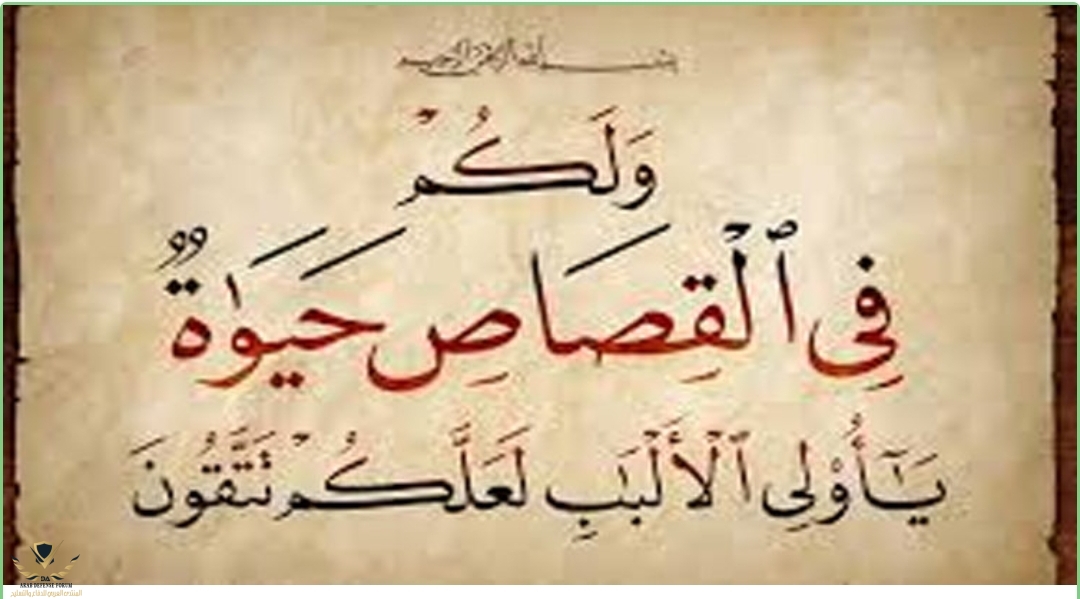 بسم الله الرحمن الرحيم
وَلَكُمْ
فِى ٱلْقِصَاصِ حَيَوٰةٌ
يَـٰٓأُو۟لِى ٱلْأَلْبَـٰبِ لَعَلَّكُمْ تَتَّقُونَ
DA
ARAB DEFENSE FORUM
المنتدى العربي للدفاع والتسليح